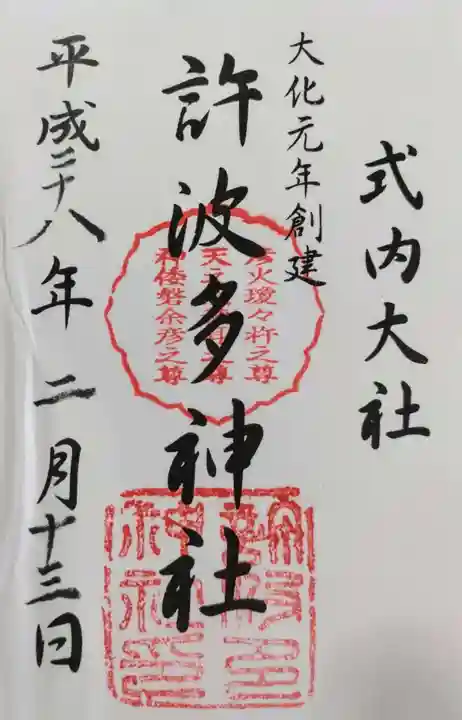 式内大社
大化元年創建
許波多神社
火瓊々杵之尊
天
之尊
神倭磐余彦之尊
平成二十八年二月十三日